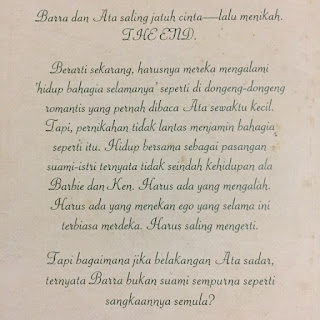 Barra dan Ata saling jatuh cinta—lalu menikah.
THE END.
Berarti sekarang, harusnya mereka mengalami
'hidup bahagia selamanya' seperti di dongeng-dongeng
romantis yang pernah dibaca Ata sewaktu kecil.
Tapi, pernikahan tidak lantas menjamin bahagia
seperti itu. Hidup bersama sebagai pasangan
suami-istri ternyata tidak seindah kehidupan ala
Barbie dan Ken. Harus ada yang mengalah.
Harus ada yang menekan ego yang selama ini
terbiasa merdeka. Harus saling mengerti.
Tapi bagaimana jika belakangan Ata sadar,
ternyata Barra bukan suami sempurna seperti
sangkaannya semula?